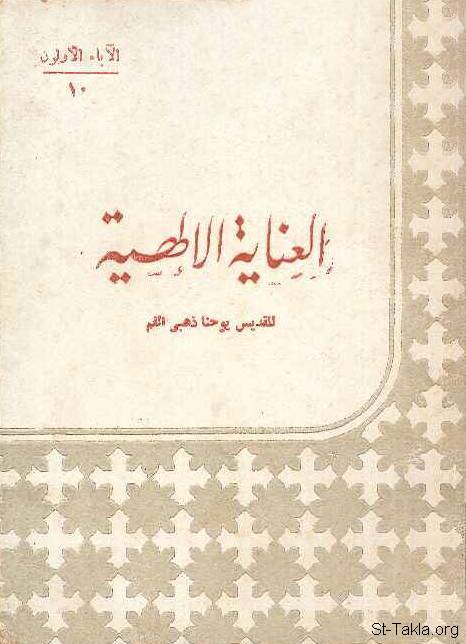 الآباء الأولون
١٠
العناية الإلهية
للقديس يوحنا ذهبى الفم
St-Takla.org